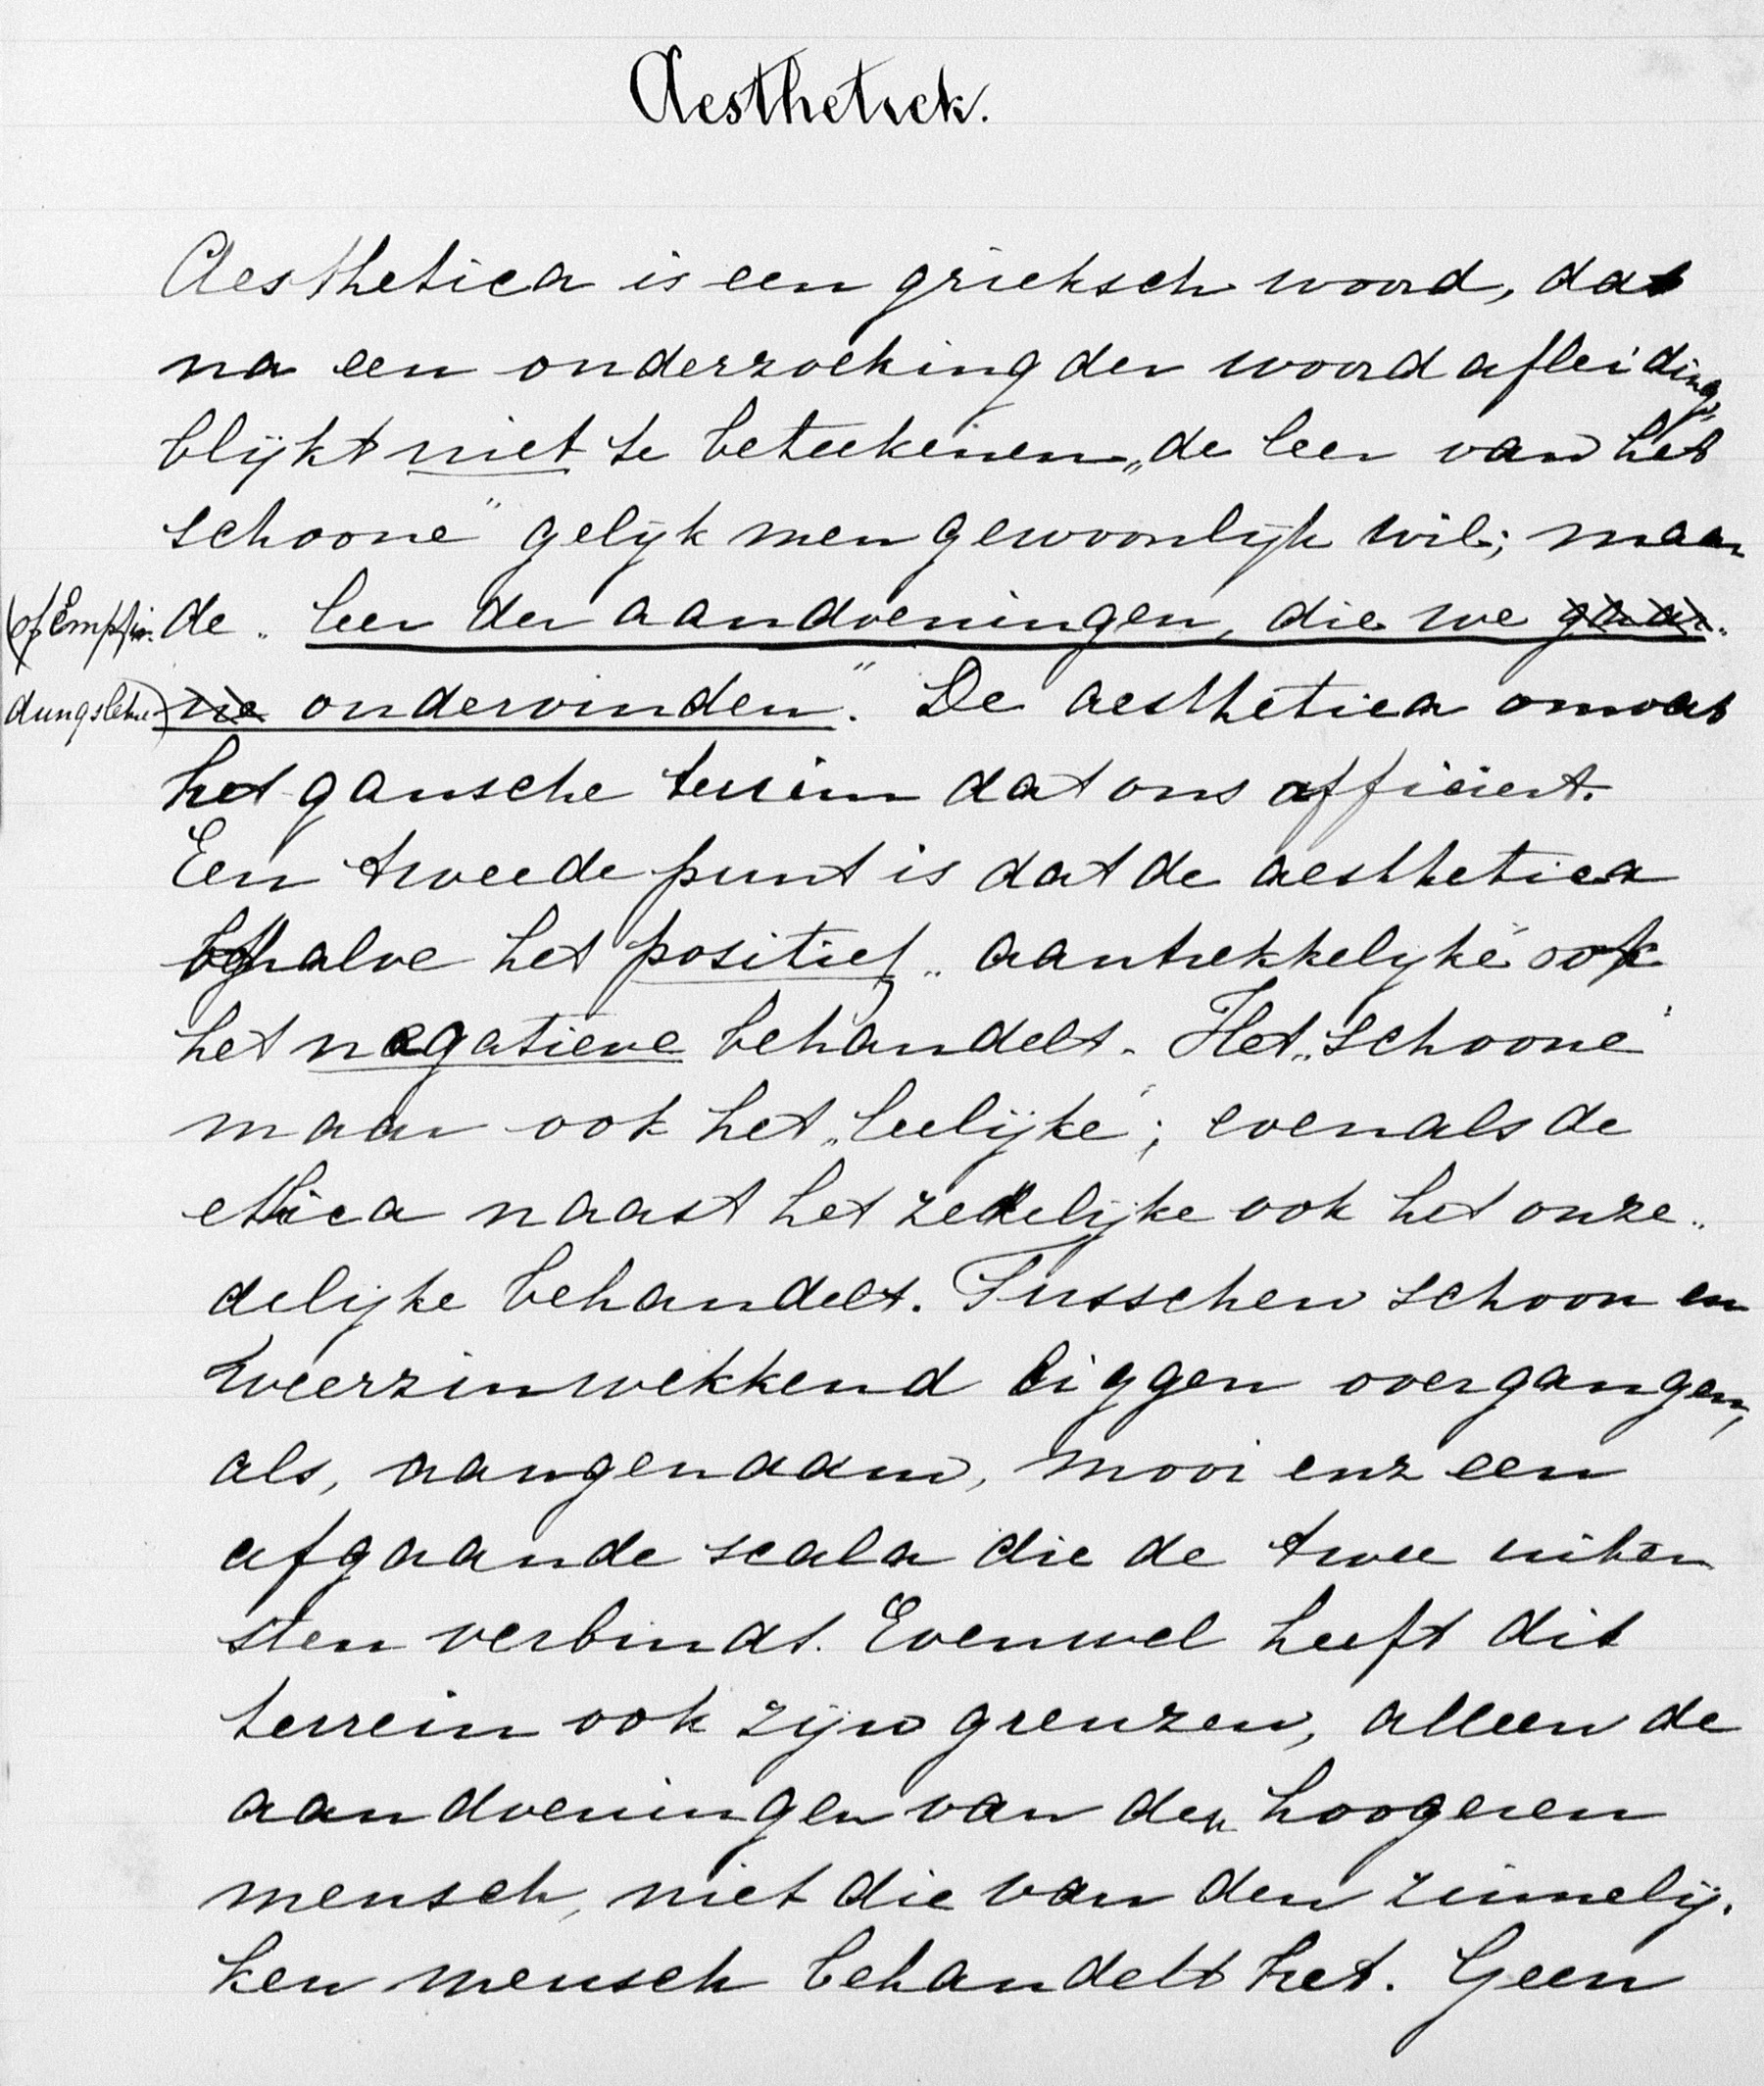 Aesthetiek.
Aesthetica is een grieksch woord, dat
na een onderzoeking der woordafleiding,
blijkt niet te beteekenen „de leer van het
schoone" gelijk men gewoonlijk wil; maar
(of Empfin- de „leer der aandoeningen, die we
dungslehre) ondervinden". De aesthetica omvat
het gansche terrein dat ons afficiert.
Een tweede punt is dat de aesthetica
behalve het positief „aantrekkelijke" ook
het negatieve behandelt. Het „schoone"
maar ook het „leelijke"; evenals de
ethica naast het zedelijke ook het onze-
delijke behandelt. Tusschen schoon en
weerzinwekkend liggen overgangen,
als, aangenaam, mooi enz een
afgaande scala die de twee uiter
sten verbindt. Evenwel heeft dit
terrein ook zijn grenzen, alleen de
aandoeningen van den hoogeren
mensch, niet die van den zinnelij-
ken mensch behandelt het. Geen